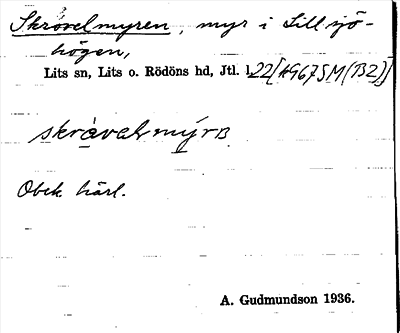 Skrövelmyren, myr i Lillsjö-
högen,
Lits sn, Lits o. Rödöns hd, Jtl. l.
skràvelmýrɐ
Obek. härl.
A. Gudmundson 1936.